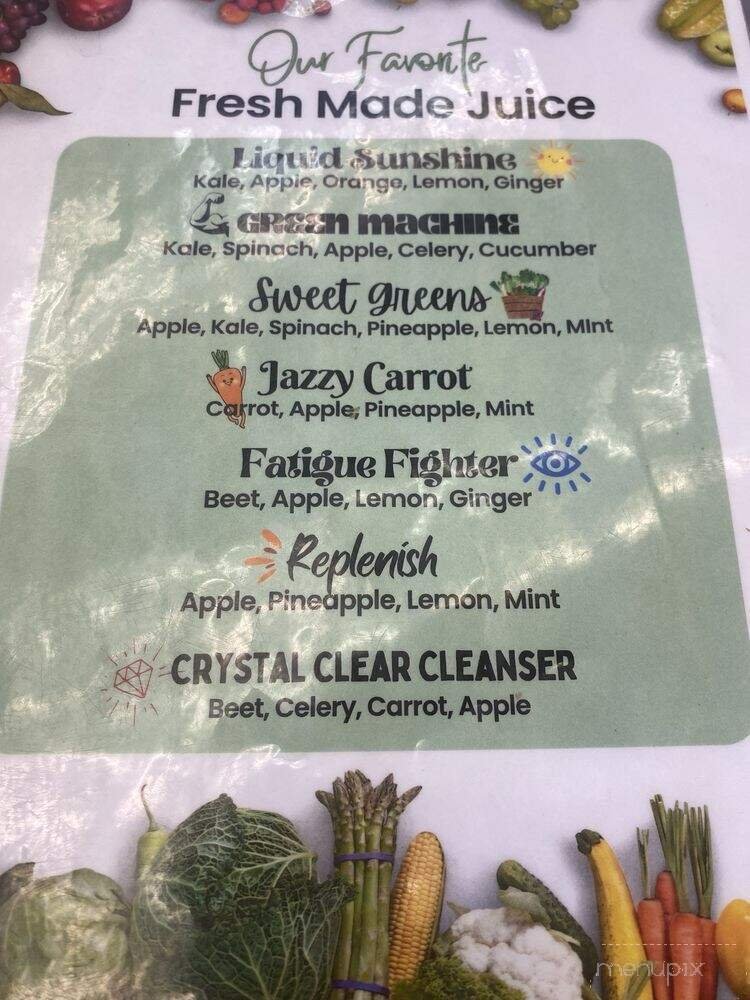 Our Favorite
Fresh Made Juice
Liquid Sunshine
Kale, Apple, Orange, Lemon, Ginger
GREEN MACHINE
Kale, Spinach, Apple, Celery, Cucumber
Sweet greens
Apple, Kale, Spinach, Pineapple, Lemon, MInt
Jazzy Carrot
Carrot, Apple, Pineapple, Mint
Fatigue Fighter
Beet, Apple, Lemon, Ginger
Replenish
Apple, Pineapple, Lemon, Mint
CRYSTAL CLEAR CLEANSER
Beet, Celery, Carrot, Apple
menupix